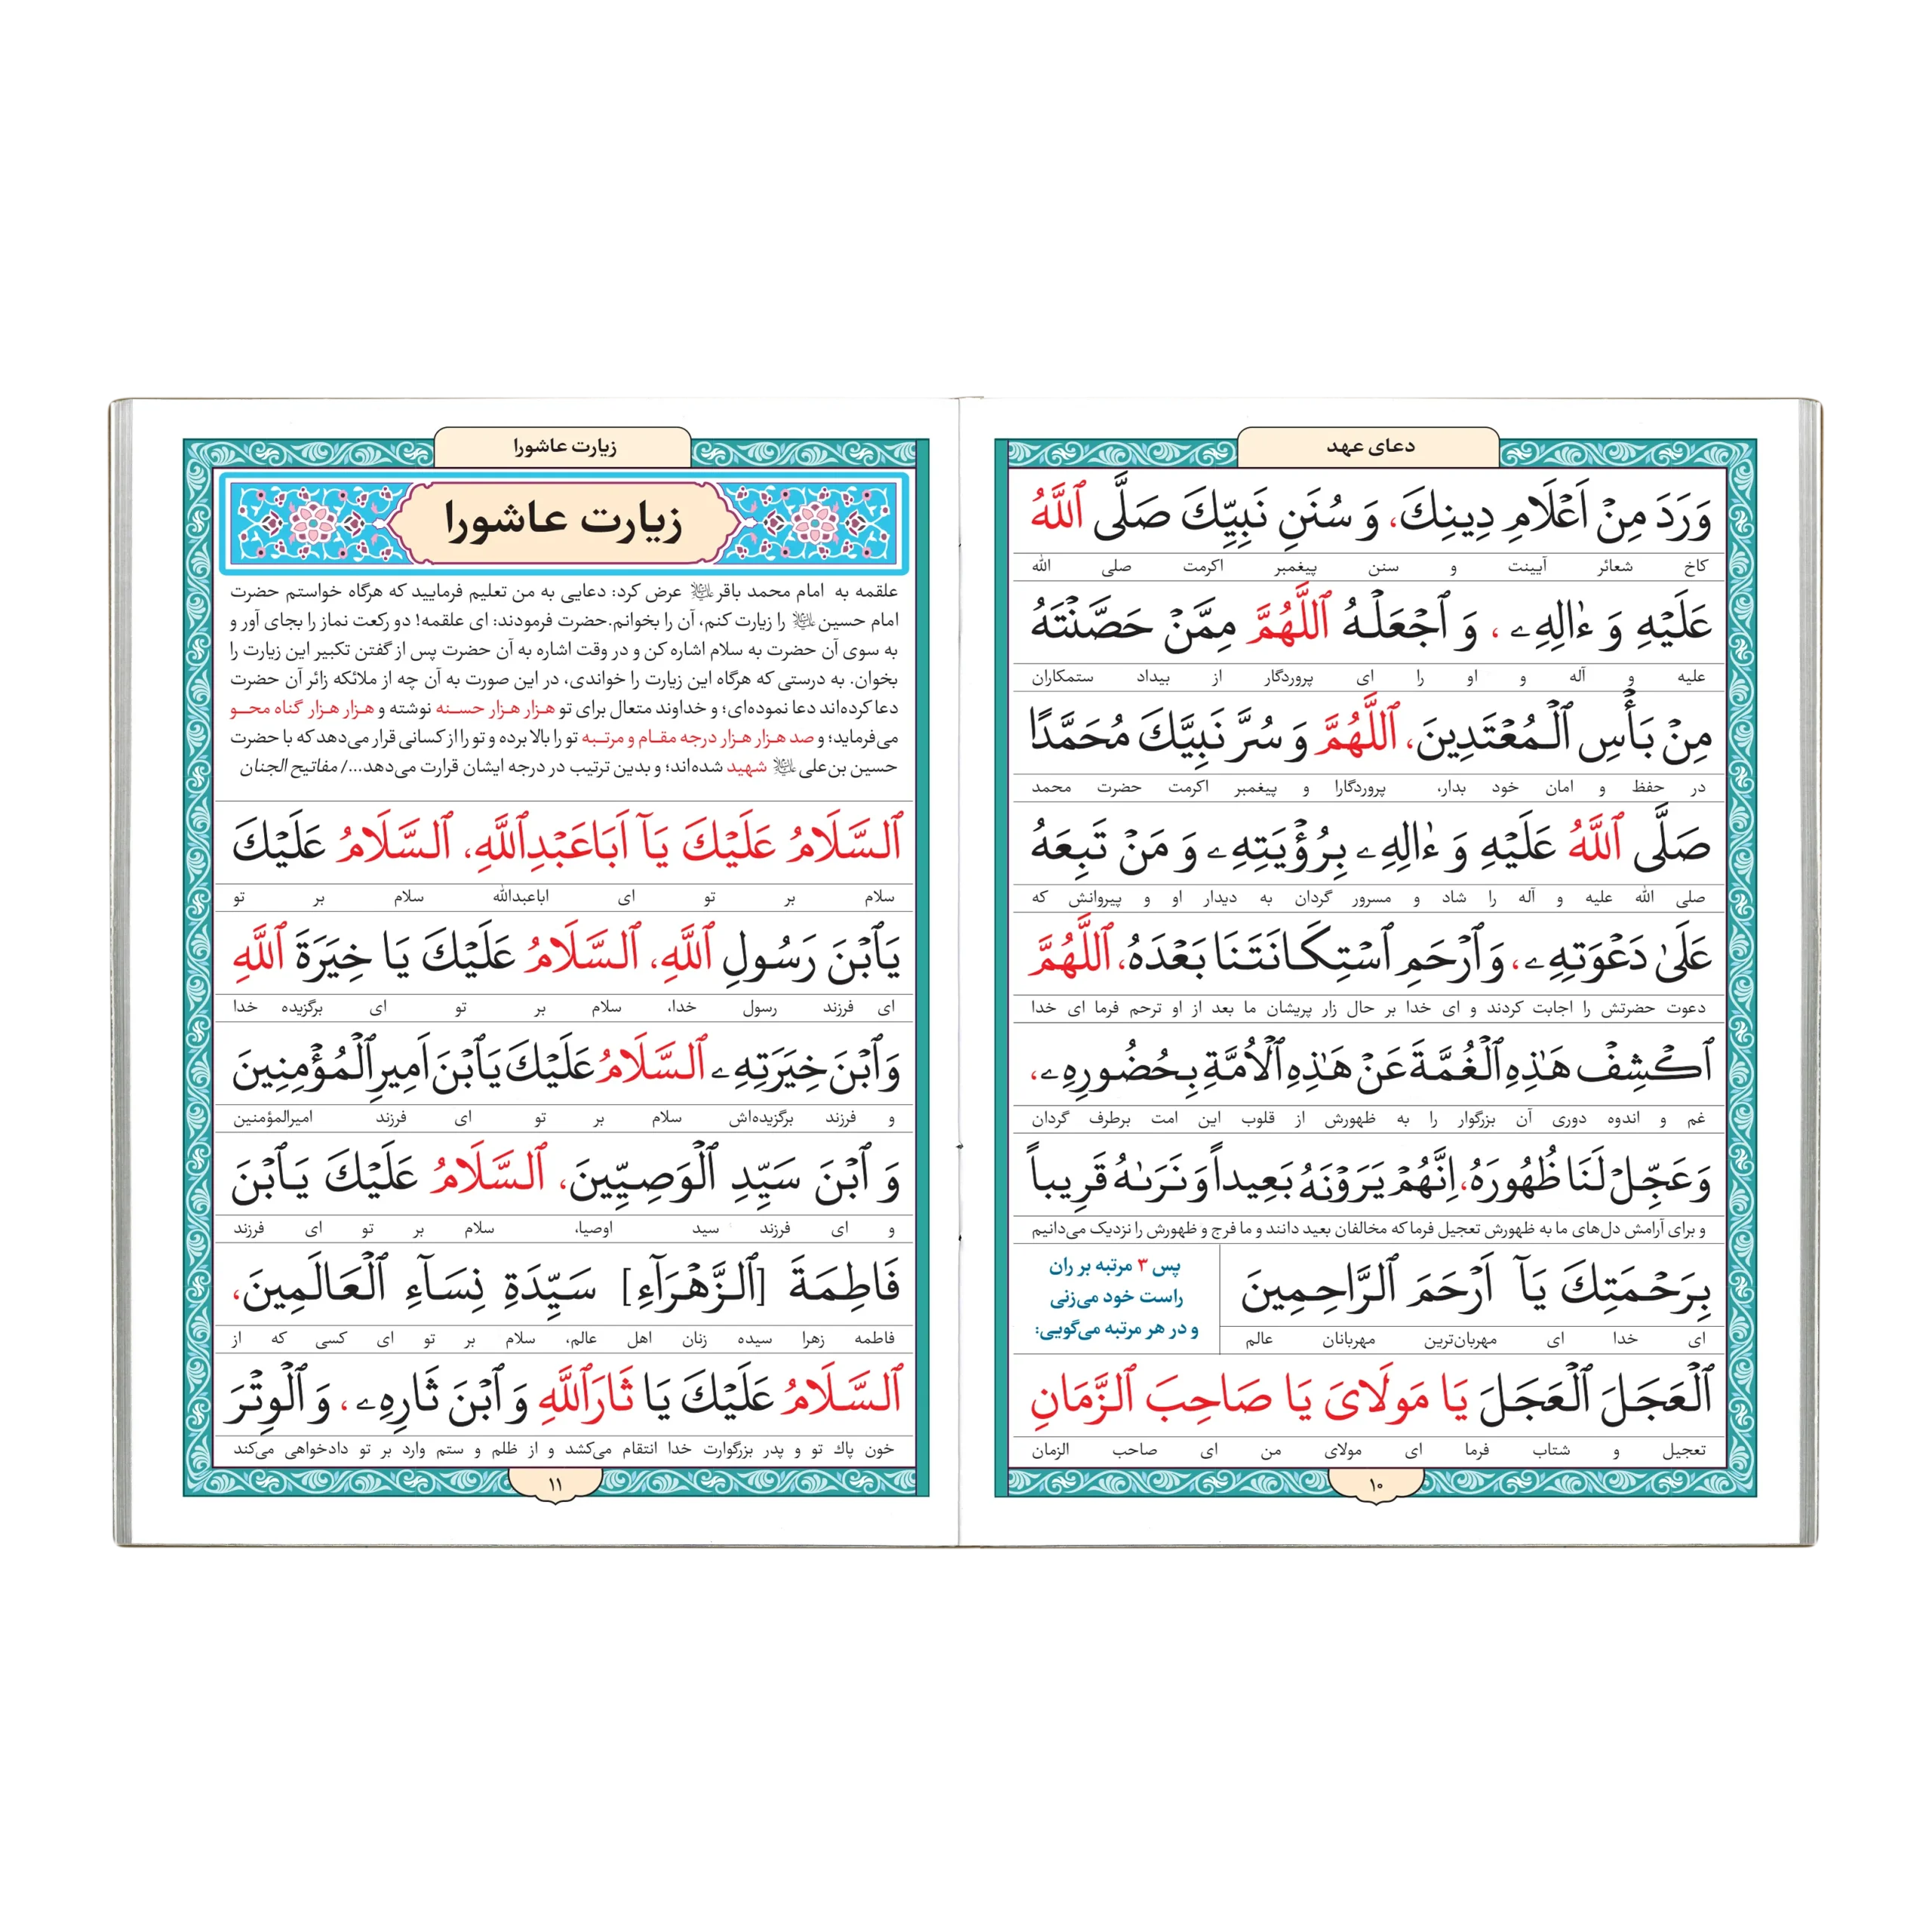 دعای عهد
وَرَدَ مِنْ اَعْلَامِ دِینِكَ، وَ سُنَنِ نَبِیِّكَ صَلَّی ٱللَّهُ
کاخ شعائر آیینت و سنن پیغمبر اکرمت صلی الله
عَلَیْهِ وَ ءٰالِهِۦ، وَ ٱجْعَلْهُ ٱللَّهُمَّ مِمَّنْ حَصَّنْتَهُ
علیه و آله و او را ای پروردگار از بیداد ستمکاران
مِنْ بَأْسِ ٱلْمُعْتَدِینَ، ٱللَّهُمَّ وَ سُرَّ نَبِیَّكَ مُحَمَّدًا
در حفظ و امان خود بدار، پروردگارا و پیغمبر اکرمت حضرت محمد
صَلَّی ٱللَّهُ عَلَیْهِ وَ ءٰالِهِۦ بِرُؤْیَتِهِۦ وَ مَنْ تَبِعَهُ
صلی الله علیه و آله را شاد و مسرور گردان به دیدار او و پیروانش که
عَلَیٰ دَعْوَتِهِۦ، وَ ٱرْحَمِ ٱسْتِكَانَتَنَا بَعْدَهُ، ٱللَّهُمَّ
دعوت حضرتش را اجابت کردند و ای خدا بر حال زار پریشان ما بعد از او ترحم فرما ای خدا
ٱكْشِفْ هَـٰذِهِ ٱلْغُمَّةَ عَنْ هَـٰذِهِ ٱلْاُمَّةِ بِحُضُورِهِۦ،
غم و اندوه دوری آن بزرگوار را به ظهورش از قلوب این امت برطرف گردان
وَ عَجِّلْ لَنَا ظُهُورَهُ، اِنَّهُمْ یَرَوْنَهُ بَعِیداً وَ نَرَىٰهُ قَرِیباً
و برای آرامش دل‌های ما به ظهورش تعجیل فرما که مخالفان بعید دانند و ما فرج و ظهورش را نزدیک می‌دانیم
بِرَحْمَتِكَ یَآ اَرْحَمَ ٱلرَّاحِمِینَ
ای خدا ای مهربان‌ترین مهربانان عالم
پس ۳ مرتبه بر ران
راست خود می‌زنی
و در هر مرتبه می‌گویی:
ٱلْعَجَلَ ٱلْعَجَلَ یَا مَوْلَایَ یَا صَاحِبَ ٱلزَّمَانِ
تعجیل و شتاب فرما ای مولای من ای صاحب الزمان
۱۰
زیارت عاشورا
زیارت عاشورا
علقمه به امام محمد باقر علیه‌السلام عرض کرد: دعایی به من تعلیم فرمایید که هرگاه خواستم حضرت
امام حسین علیه‌السلام را زیارت کنم، آن را بخوانم.حضرت فرمودند: ای علقمه! دو رکعت نماز را بجای آور و
به سوی آن حضرت به سلام اشاره کن و در وقت اشاره به آن حضرت پس از گفتن تکبیر این زیارت را
بخوان. به درستی که هرگاه این زیارت را خواندی، در این صورت به آن چه از ملائکه زائر آن حضرت
دعا کرده‌اند دعا نموده‌ای؛ و خداوند متعال برای تو هزار هزار حسنه نوشته و هزار هزار گناه محو
می‌فرماید؛ و صد هزار هزار درجه مقام و مرتبه تو را بالا برده و تو را از کسانی قرار می‌دهد که با حضرت
حسین بن‌علی علیه‌السلام شهید شده‌اند؛ و بدین ترتیب در درجه ایشان قرارت می‌دهد.../ مفاتیح الجنان
ٱلسَّلَامُ عَلَیْكَ یَآ اَبَاعَبْدِٱللَّهِ، ٱلسَّلَامُ عَلَیْكَ
سلام بر تو ای اباعبدالله سلام بر تو
یَاٱبْنَ رَسُولِ ٱللَّهِ، ٱلسَّلَامُ عَلَیْكَ یَا خِیَرَةَ ٱللَّهِ
ای فرزند رسول خدا، سلام بر تو ای برگزیده خدا
وَ ٱبْنَ خِیَرَتِهِۦ ٱلسَّلَامُ عَلَیْكَ یَاٱبْنَ اَمِیرِ ٱلْمُؤْمِنِینَ
و فرزند برگزیده‌اش سلام بر تو ای فرزند امیرالمؤمنین
وَ ٱبْنَ سَیِّدِ ٱلْوَصِیِّینَ، ٱلسَّلَامُ عَلَیْكَ یَاٱبْنَ
و ای فرزند سید اوصیا، سلام بر تو ای فرزند
فَاطِمَةَ [ٱلزَّهْرَآءِ] سَیِّدَةِ نِسَآءِ ٱلْعَالَمِینَ،
فاطمه زهرا سیده زنان اهل عالم، سلام بر تو ای کسی که از
ٱلسَّلَامُ عَلَیْكَ یَا ثَارَٱللَّهِ وَ ٱبْنَ ثَارِهِۦ، وَ ٱلْوِتْرَ
خون پاك تو و پدر بزرگوارت خدا انتقام می‌کشد و از ظلم و ستم وارد بر تو دادخواهی می‌کند
۱۱